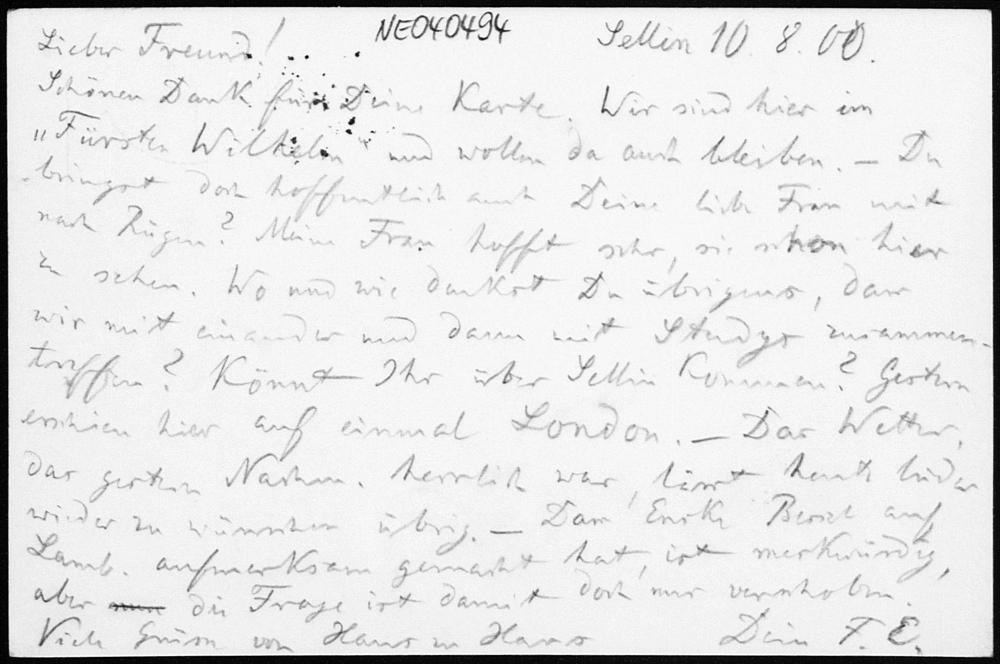 NE040494
Lieber Freund! Sellin 10. 8. 00.
Schönen Dank für Deine Karte. Wir sind hier im
„Fürsten Wilhelm“ und wollen da auch bleiben. – Du
bringst doch hoffentlich auch Deine liebe Frau mit
nach Rügen? Meine Frau hofft sehr, sie schon hier
zu sehen. Wo und wie denkst Du übrigens, dass
wir mit einander und dann mit Studys zusammen-
treffen? Könnt Ihr über Sellin kommen? Gestern
erschien hier auf einmal London. – Das Wetter,
das gestern Nachm. herrlich war, lässt heute leider
wieder zu wünschen übrig. – Dass Encke auf
Lamb. aufmerksam gemacht hat, ist merkwürdig,
aber die Frage ist damit doch nur verschoben.
Viele Grüsse von Haus zu Haus Dein F. E.